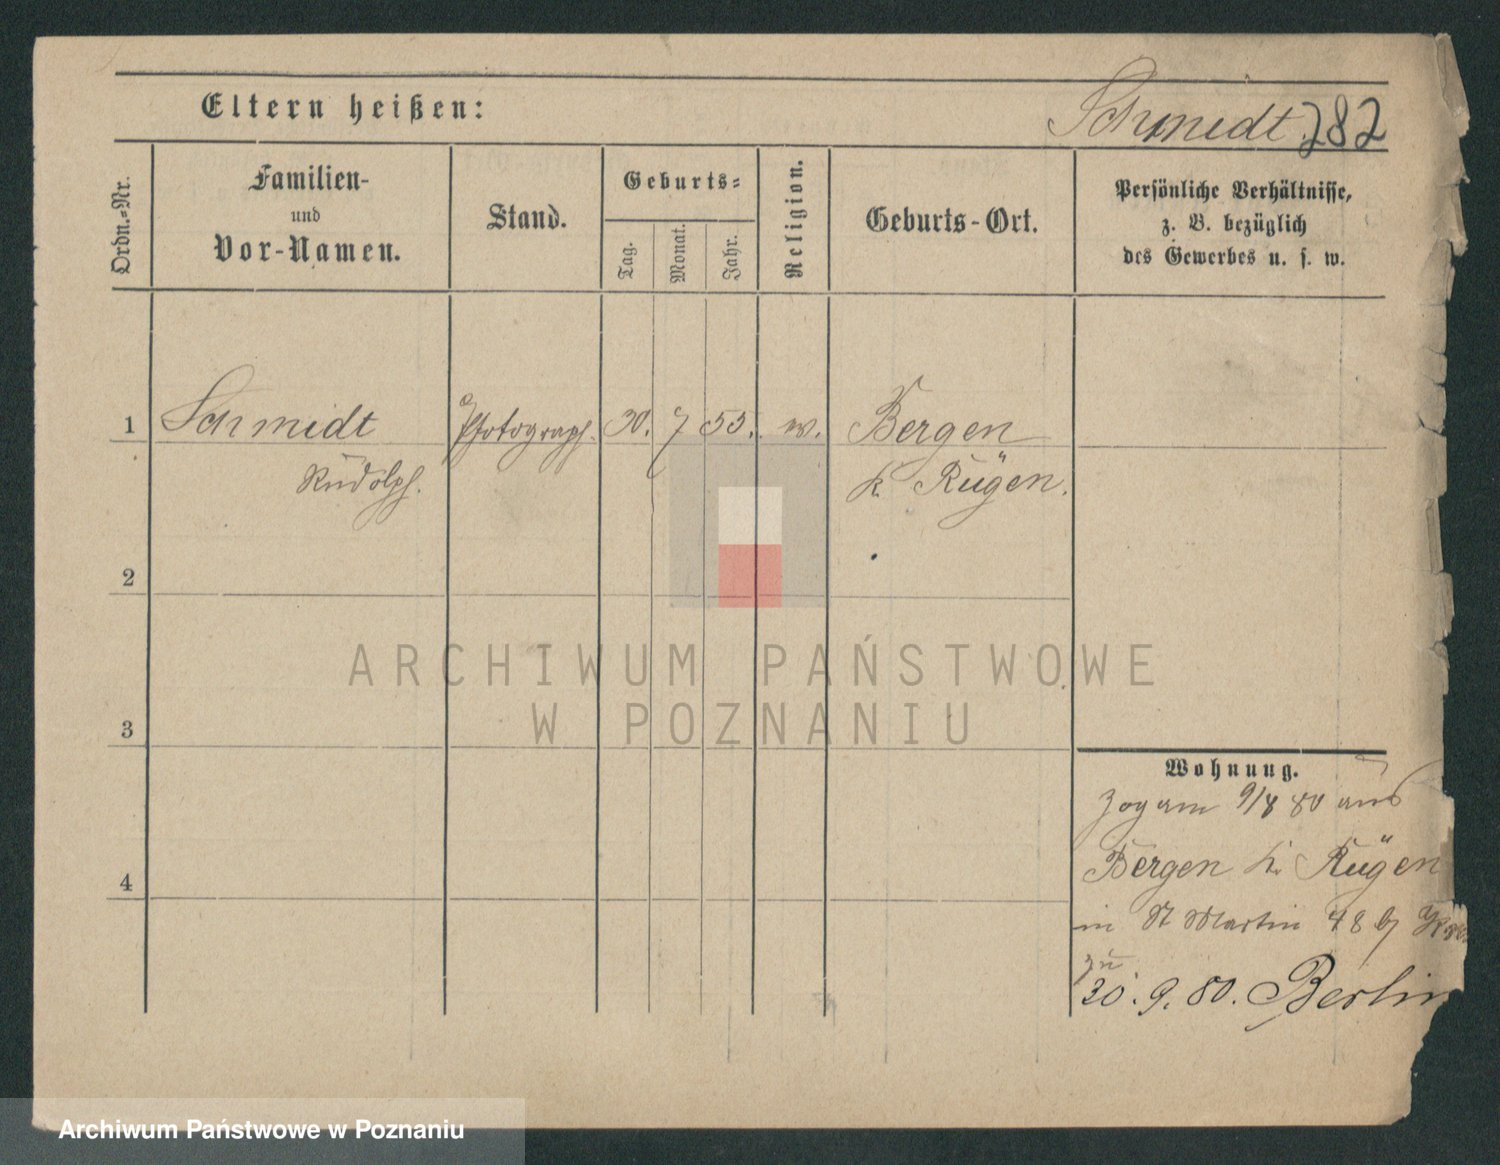 Eltern heißen:
Schmidt 282
Ordn.=Nr.
Familien-
und
Vor-Namen.
Stand.
Geburts=
Tag.
Monat.
Jahr.
Religion.
Geburts-Ort.
Persönliche Verhältnisse,
z. B. bezüglich
des Gewerbes u. s. w.
1 Schmidt Photograph. 30. 7 55. Bergen
Rudolph. k. Rügen.
2
ARCHIWUM PAŃSTWOWE
W POZNANIU
3
Wohnung.
Zog am 9/8 80 aus
Bergen k. Rügen
4
in St Martin 48 by
zu
30. 9. 80. Berlin
Archiwum Państwowe w Poznaniu